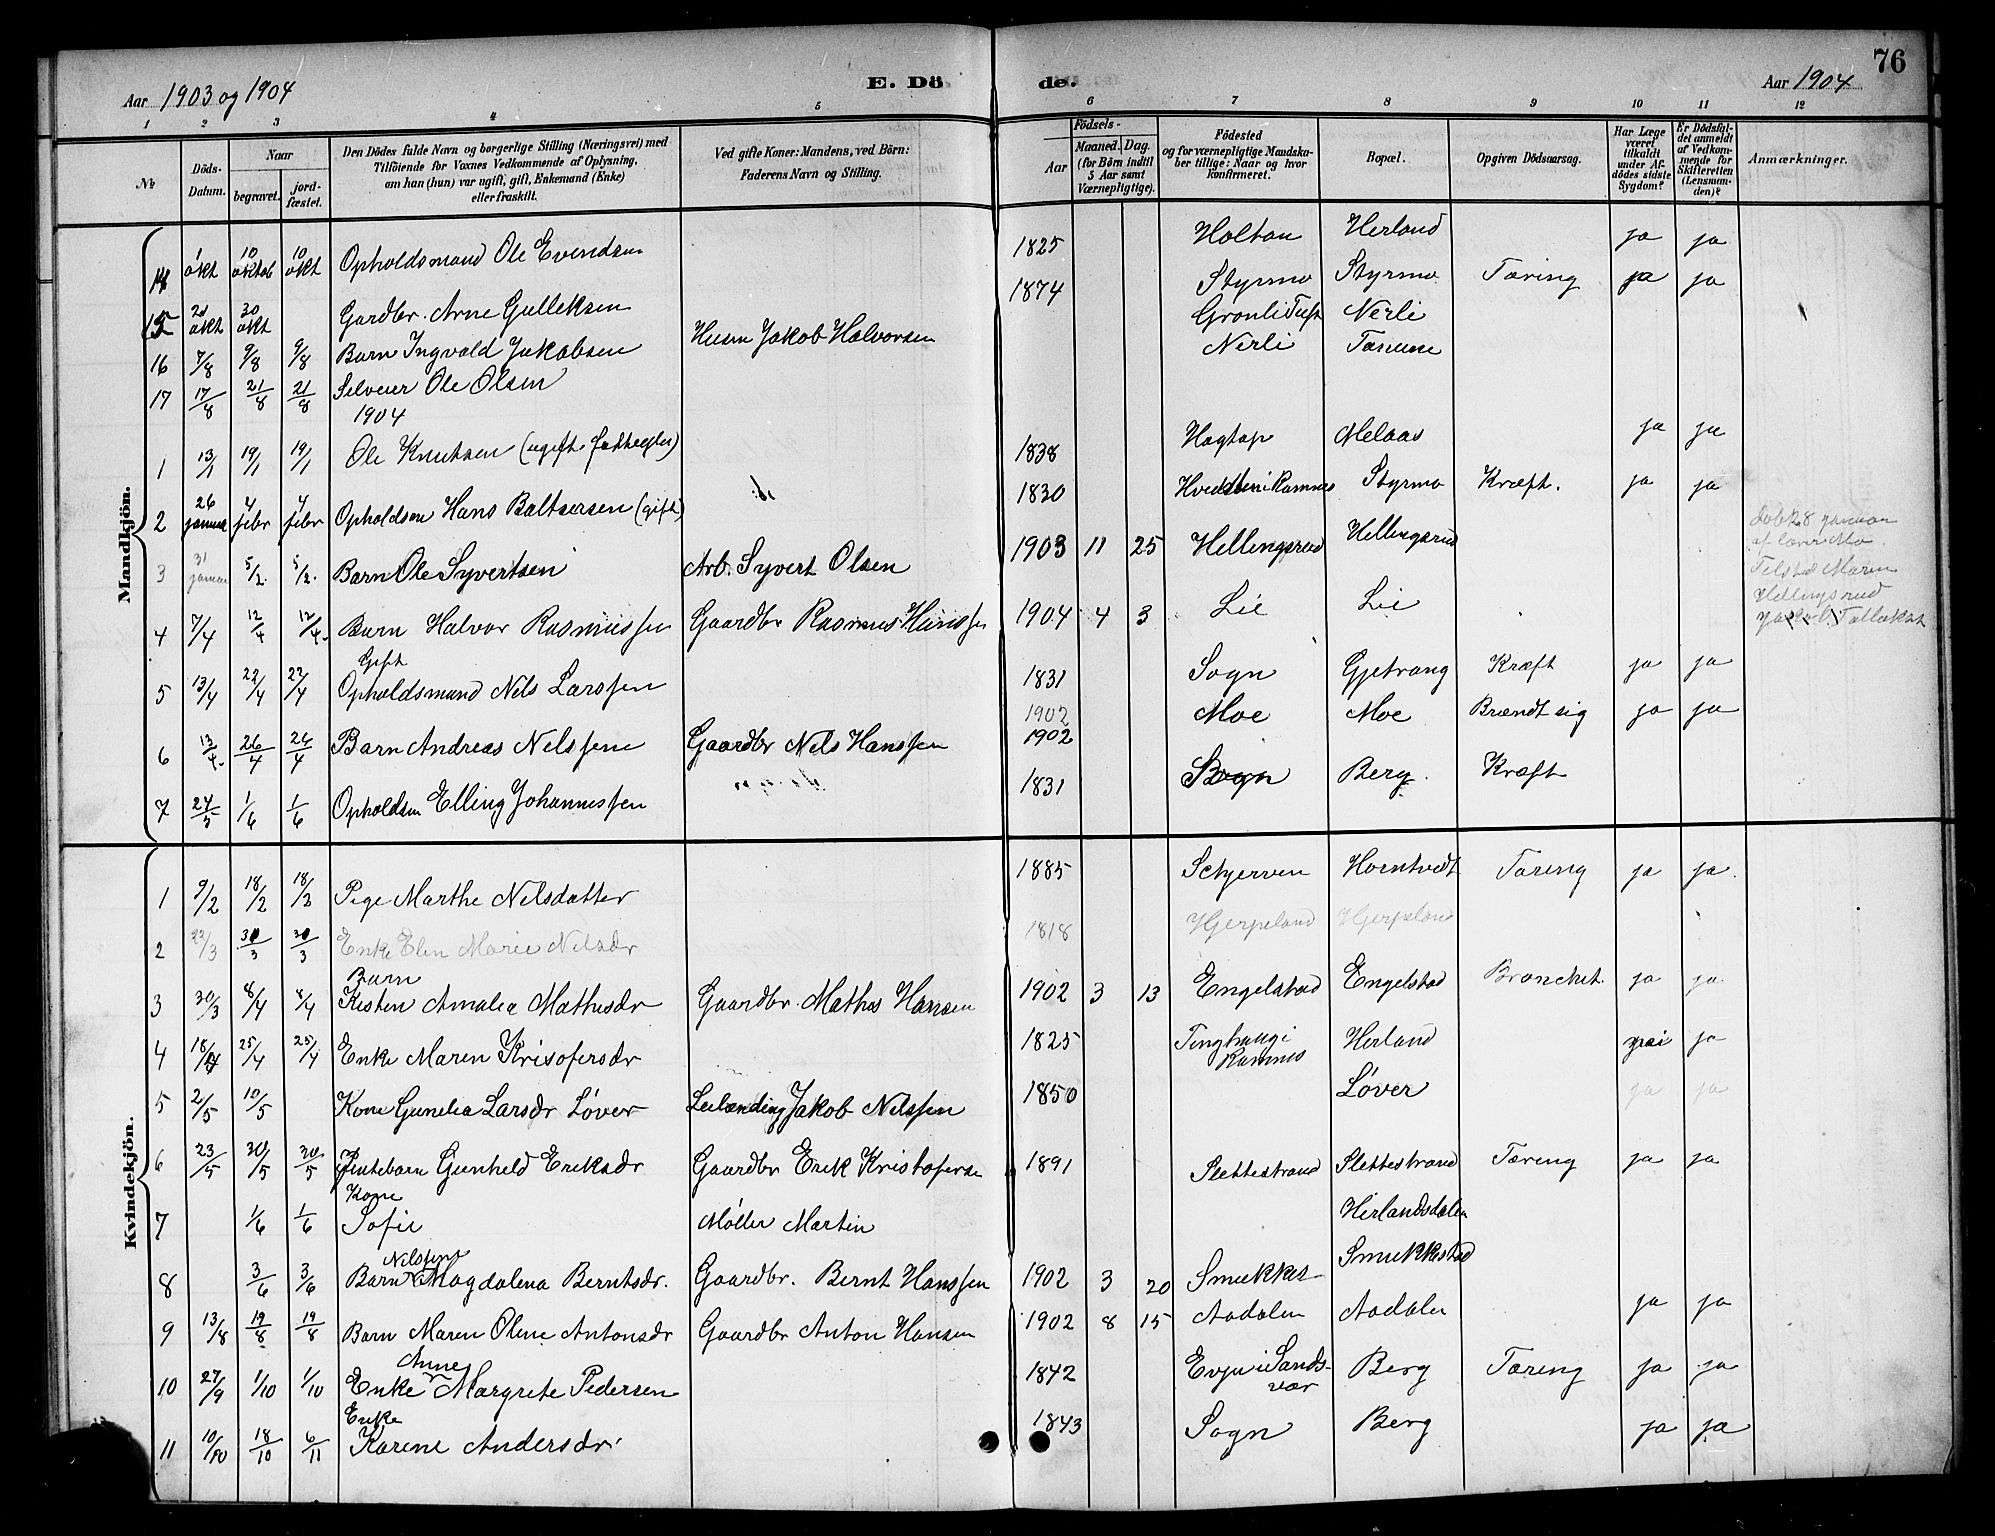 76
Aar 1903 og 1904 E. Dö de. Aar 1904
1 2 3 4 5 6 7 8 9 10 11 12
№ Döds-Datum. Naar begravet. jordfæstet. Den Dödes fulde Navn og borgerlige Stilling (Næringsvei) med Tilföiende for Voxnes Vedkommende af Oplysning, om han (hun) var ugift, gift, Enkemand (Enke) eller fraskilt. Ved gifte Koner: Mandens, ved Börn: Faderens Navn og Stilling. Födsels- Aar Maaned. Dag. (for Börn indtil 5 Aar samt Værnepligtige). Födested og for værnepligtige Mandskaber tillige: Naar og hvor konfirmeret. Bopæl. Opgiven Dödsaarsag. Har Læge været tilkaldt under Afdödes sidste Sygdom? Er Dödsfaldet anmeldt af Vedkommende for Skifteretten (Lensmanden)? Anmærkninger.
Mandkjön.
14 1 okt 10 oktob 10 okt Opholdsmand Ole Evendsen 1825 Holtan Herland ja ja
15 20 okt 30 okt Gardbr. Arne Gulleksen 1874 Styrmo Styrmo Tæring ja ja
16 7/8 9/8 9/8 Barn Ingvald Jakobsen Husm Jakob Halvorsen Gronli Tuft Nerli
17 17/8 21/8 21/8 Selveier Ole Olsen Nerli Tanum
1904
1 13/1 19/1 19/1 Ole Knutsen (ugift. fattigler) 1838 Hagtop Melaas ja ja
2 26 januar 4 febr 4 febr Opholdsm Hans Baltsersen (gift) 1830 Hvedsten i Ramnes Styrmo Kræft. ja ja
3 31 januar 5/2. 5/2. Barn Ole Syvertsen Arb. Syvert Olsen 1903 11 25 Hellingsrud Hellingsrud Døbt 28 januar af lærer Mo Tilsted Maren Hellingsrud
4 7/4 12/4 12/4 Barn Halvor Rasmussen Gaardbr Rasmus Hanssen 1904 4 3 Lie Lie
5 13/4 22/4 22/4 Gift Opholdsmand Nils Larssen 1831 Sogn Gjetrang Kræft ja ja
1902
6 13/4. 26/4 26/4 Barn Andreas Nelssen Gaardbr Nels Hanssen 1902 Moe Moe Brændt sig ja ja
7 24/5 1/6 1/6 Opholdsm Elling Johannessen 1831 Sogn Berg. Kræft
Kvindekjön.
1 9/2 18/2 18/2 Pige Marthe Nilsdatter 1885 Schjerven Horntvedt Tæring ja ja.
2 22/3 30/3 30/3 Enke Elen Marie Nelsdr 1818 Hjerpeland Hjerpeland
3 30/3 8/4 8/4 Barn Kesten Amalia Mathisdr Gaardbr. Mathis Hansen 1902 3 13 Engelstad Engelstad Bronchit. ja ja
4 18/4 25/4 25/4 Enke Maren Krisofersdr 1825 Tinghaug i Ramnes Herland nei ja
5 2/5 10/5 Kone Gunelia Larsdr Løver Leilænding Jakob Nelssen 1850 Løver ja ja
6 23/5 30/5 30/5 Pikebarn Gunheld Eriksdr Gaardbr Erik Kristofersn 1891 Slettestrand Slettestrand Tæring ja ja
7 1/6 1/6 Kone Sofie Møller Martin Herlandsdalen
8 3/6 3/6 Barn Nilssine Magdalena Berntsdr. Gaardbr. Bernt Hanssen 1902 3 20 Smukkes- Smukkestad
9 13/8 19/8 19/8 Barn Maren Oline Antonsdr Gaardbr Anton Hansen 1902 8 15 Aadalen Aadalen ja ja
10 27/9 1/10 1/10 Enke Anne Margrete Pedersen 1842 Evju i Sandsvær Berg Tæring ja ja
11 10/10 18/10 6/11 Enke Karene Andersdr 1843 Sogn Berg ja ja